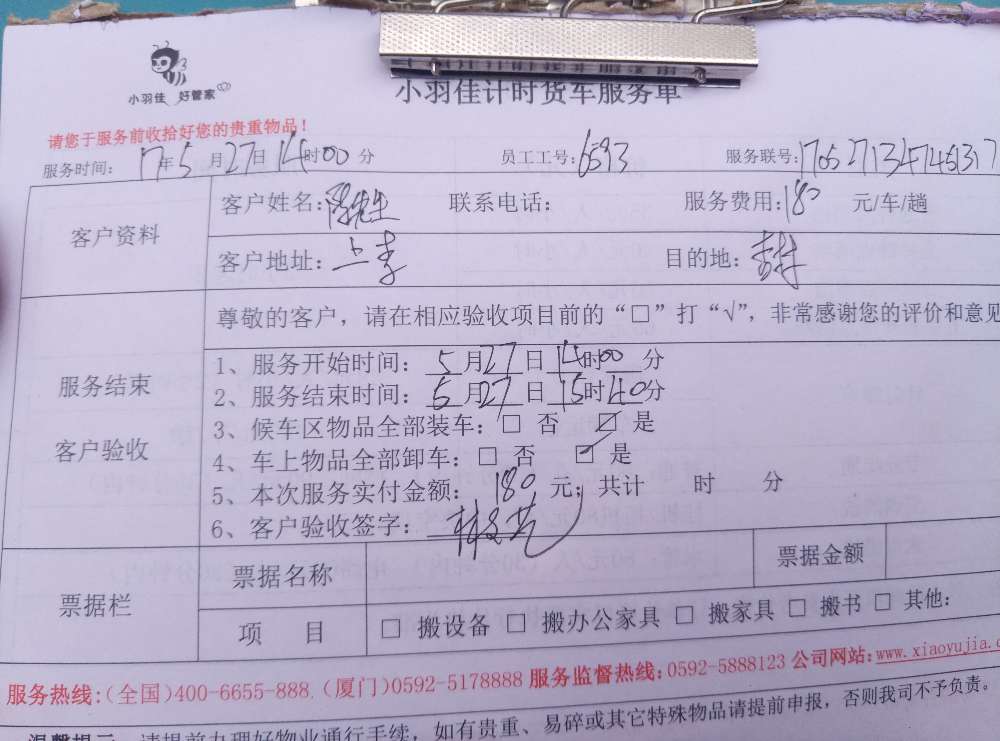 小羽佳 好管家
小羽佳计时货车服务单
请您于服务前收拾好您的贵重物品!
服务时间: 17年5月27日14时00分 员工工号:6593 服务联号:
客户资料
客户姓名:陈先生 联系电话: 服务费用:180 元/车/趟
客户地址:上李 目的地:
尊敬的客户,请在相应验收项目前的“□”打“√”,非常感谢您的评价和意见
服务结束
客户验收
1、服务开始时间:5月27日14时00分
2、服务结束时间:5月27日15时40分
3、候车区物品全部装车:□ 否 ☑ 是
4、车上物品全部卸车:□ 否 ☑ 是
5、本次服务实付金额: 180 元;共计 时 分
6、客户验收签字:
票据栏
票据名称 票据金额
项 目 □ 搬设备 □ 搬办公家具 □ 搬家具 □ 搬书 □ 其他:
服务热线:(全国)400-6655-888.(厦门)0592-5178888 服务监督热线:0592-5888123 公司网站:www.xiaoyujia.
温馨提示 请提前办理好物业通行手续,如有贵重、易碎或其它特殊物品请提前申报,否则我司不予负责。